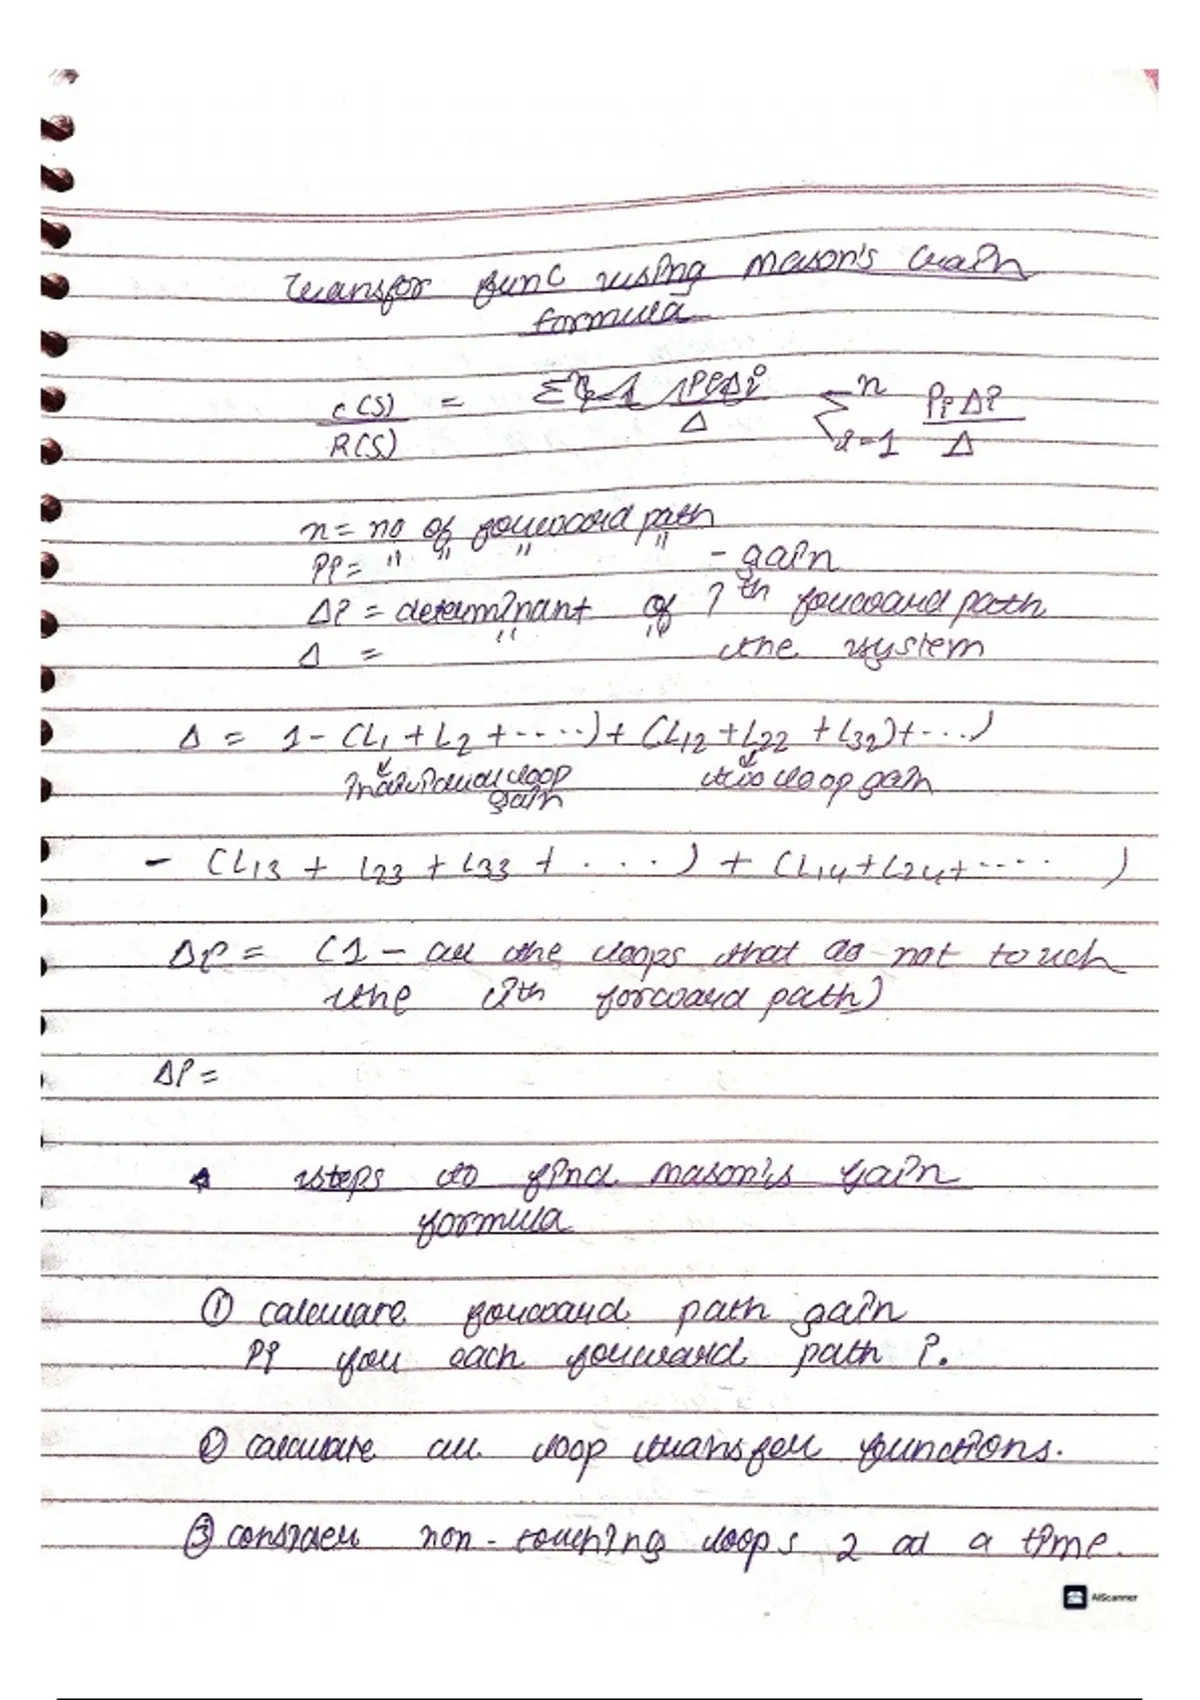 Transfor func using mason's Gain
formula
C(S)/R(S) = Σⁿi=1 PiΔi/Δ Σⁿi=1 PiΔi/Δ
n = no of forward path
Pi = " " " " - gain
Δi = determinant of ith forward path
Δ = " " the system
Δ = 1 - (L1 + L2 + -----) + (L12 + L22 + L32) + ---)
individual loop gain two loop gain
- (L13 + L23 + L33 + ....) + (L14 + L24 + ---- )
Δi = (1 - all the loops that do not touch
the ith forward path)
Δi =
steps to find mason's gain
formula
① calculate forward path gain
Pi for each forward path i.
② calculate all loop transfer functions.
③ consider non-touching loops 2 at a time.
AIScanner